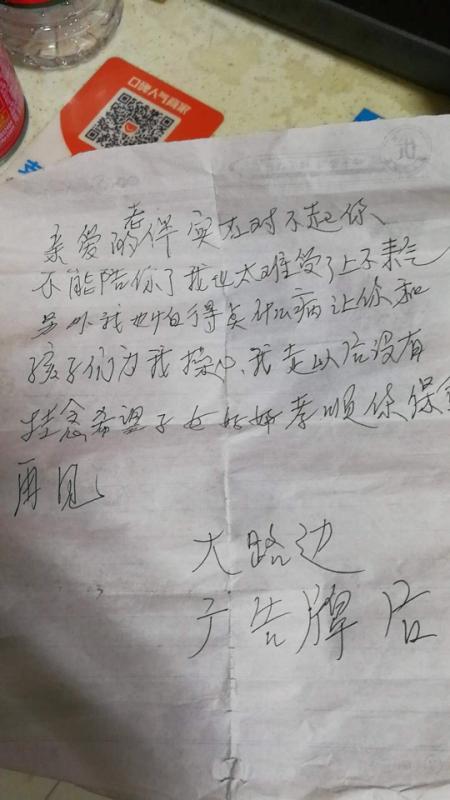 口碑人气商家
亲爱的老伴实在对不起你、
不能陪你了我也太难受了上不来气
另外我也怕得其什么病让你和
孩子们为我操心、我走以后没有
挂念希望子女好好孝顺你保重
再见
大路边
广告牌后